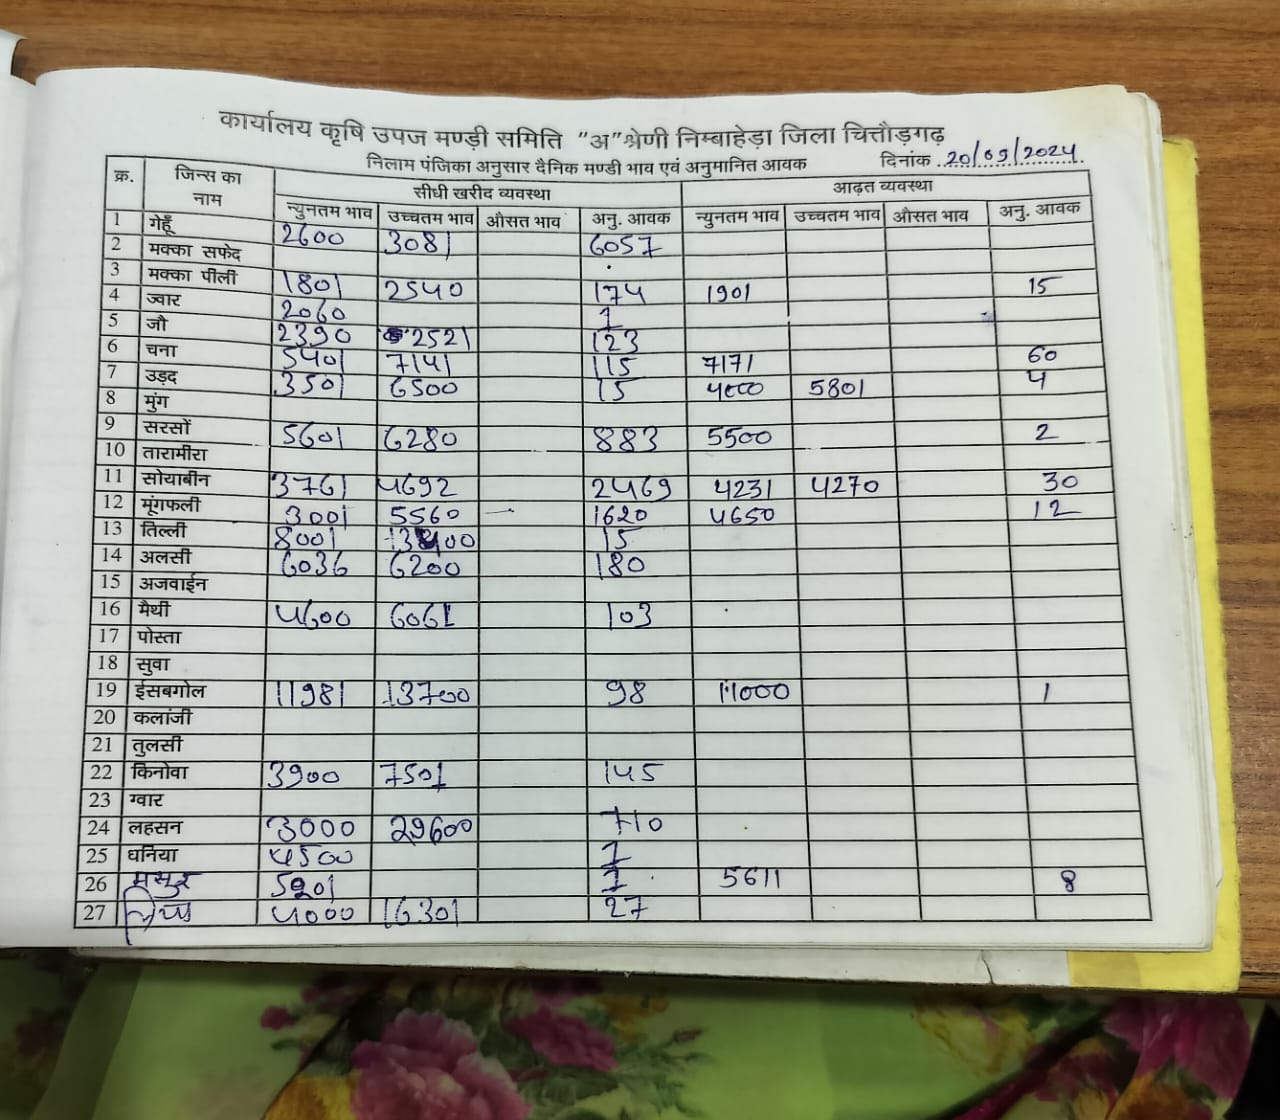 कार्यालय कृषि उपज मण्डी समिति "अ" श्रेणी निम्बाहेड़ा जिला चित्तौड़गढ़
निलाम पंजिका अनुसार दैनिक मण्डी भाव एवं अनुमानित आवक दिनांक 20/09/2024
क्र. जिन्स का नाम सीधी खरीद व्यवस्था आढ़त व्यवस्था
न्युनतम भाव उच्चतम भाव औसत भाव अनु. आवक न्युनतम भाव उच्चतम भाव औसत भाव अनु. आवक
1 गेहूँ 2600 3081 6057
2 मक्का सफेद
3 मक्का पीली 1801 2540 174 1901 15
4 ज्वार 2060 1
5 जौ 2390 2521 123
6 चना 5401 7141 115 7171 60
7 उड़द 3501 6500 15 4000 5801 4
8 मुंग
9 सरसों 5601 6280 883 5500 2
10 तारामीरा
11 सोयाबीन 3761 4692 2469 4231 4270 30
12 मूंगफली 3001 5560 — 1620 4650 12
13 तिल्ली 8001 15
14 अलसी 6036 6200 180
15 अजवाईन
16 मैथी 4600 6061 103
17 पोस्ता
18 सुवा
19 ईसबगोल 11981 13700 98 11000 1
20 कलांजी
21 तुलसी
22 किनोवा 3900 7501 145
23 ग्वार
24 लहसन 3000 29600 710
25 धनिया 4500 1
26 मसुर 5901 1 5611 8
27 4000 16301 27